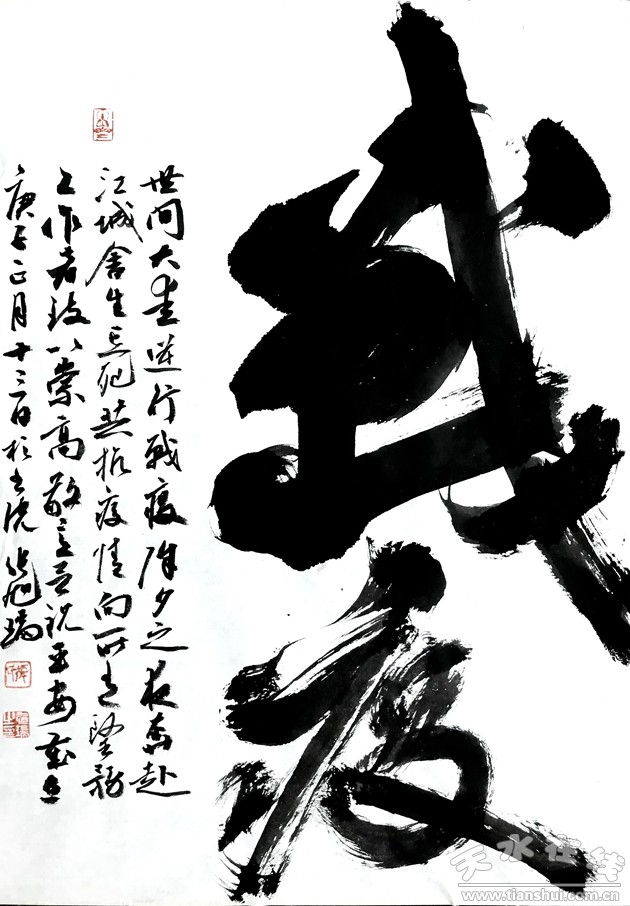 戰疫
世间大爱逆行戰疫除夕之夜奔赴
江城舍生忘死共抗疫情向所有醫務
工作者致以崇高敬意并祝平安歲在
庚子正月十三日於
天水在线
www.tianshui.com.cn